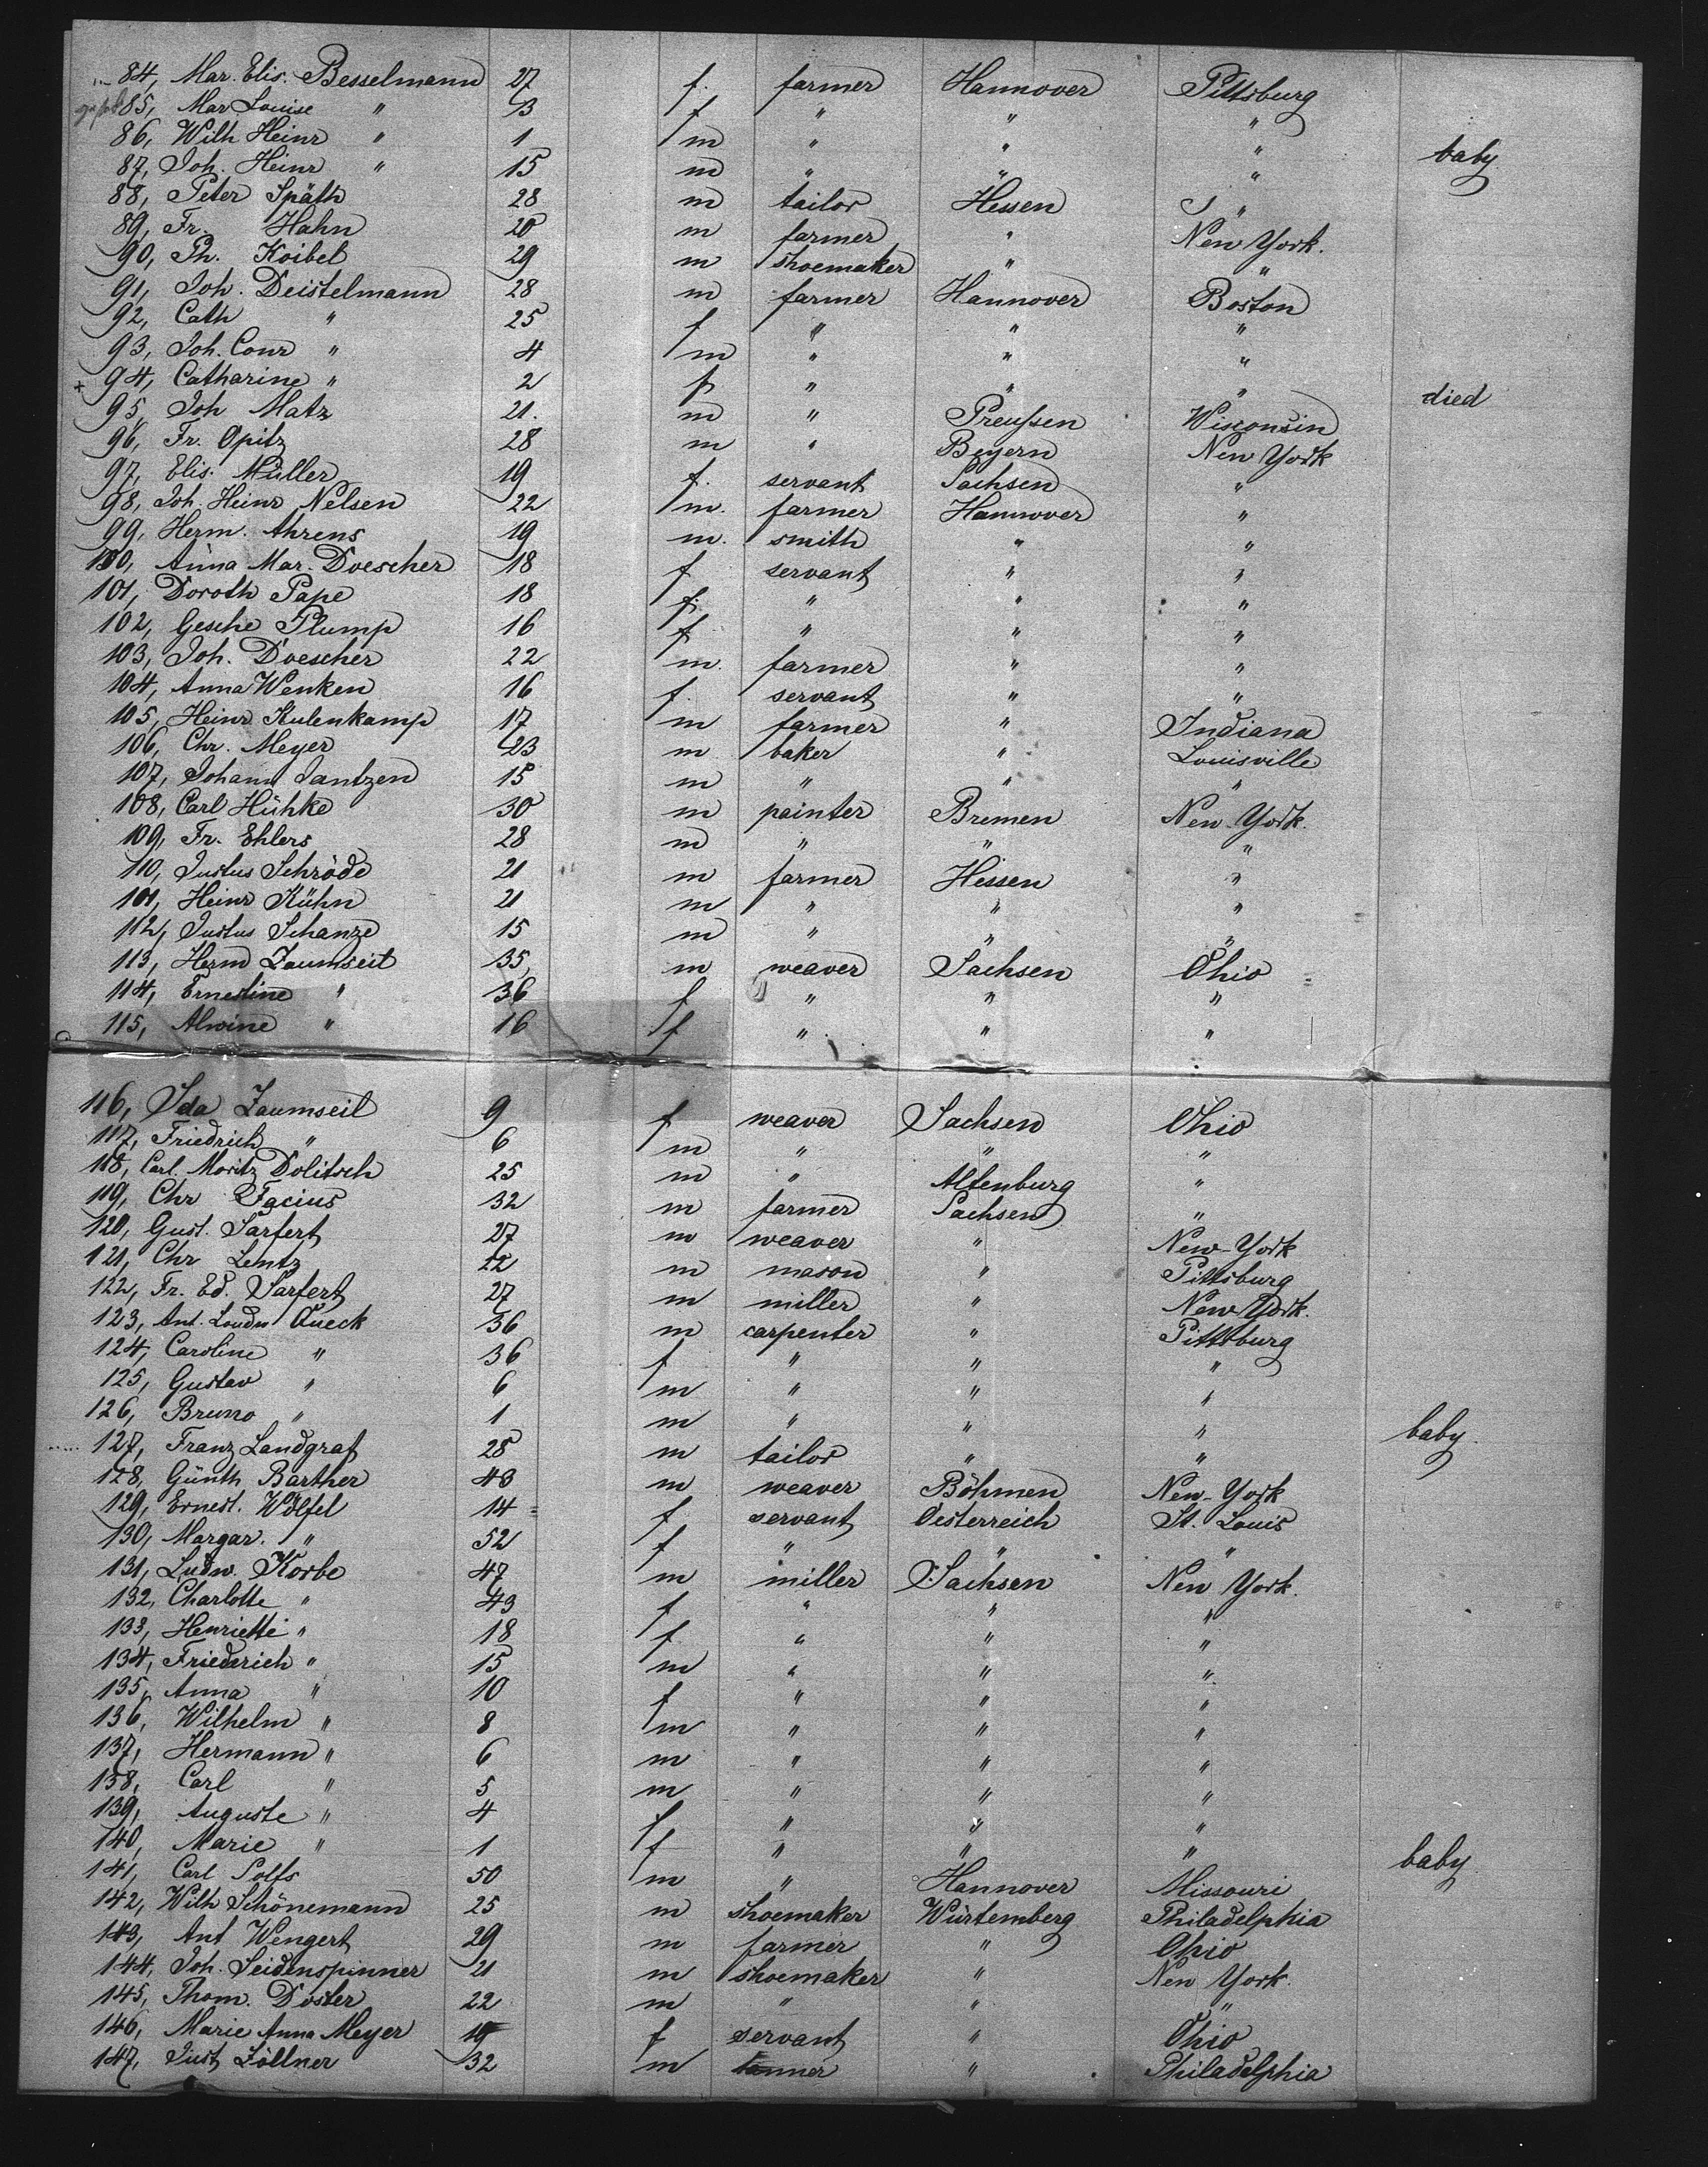 84, Mar. Elis. Besselmann 27 f. farmer Hannover Pittsburg
85, Mar Louise " 3 f " " "
86, Wilh Heinr " 1 m " " " baby
87, Joh. Heinr " 15 m " " "
88, Peter Späth 28 m tailor Hessen "
89, Fr. Hahn 20 m farmer " New York.
90, Ph. Koibel 29 m shoemaker " "
91, Joh. Deistelmann 28 m farmer Hannover Boston
92, Cath " 25 f " " "
93, Joh. Conr " 4 m " " "
+ 94, Catharine " 2 f " " " died
95, Joh Matz 21. m " Preußen Wisconsin
96, Fr. Opitz 28 m " Beyern New York
97, Elis. Müller 19 f. servant Sachsen "
98, Joh. Heinr Nelsen 22 m. farmer Hannover "
99, Herm. Ahrens 19 m. smith " "
100, Anna Mar. Doescher 18 f servant " "
101, Doroth Pape 18 f. " " "
102, Gesche Plump 16 f " " "
103, Joh. Doescher 22 m. farmer " "
104, Anna Wenken 16 f. servant " "
105, Heinr Kulenkamp 17 m farmer " Indiana
106, Chr. Meyer 23 m baker " Louisville
107, Johann Jantzen 15 m " " "
108, Carl Hühke 30 m painter Bremen New-York.
109, Fr. Ehlers 28 m " " "
110, Justus Schröde 21 m farmer Hessen "
101, Heinr Kühn 21 m " " "
112, Justus Schanze 15 m " " "
113, Herm Zaumseit 35 m weaver Sachsen Ohio
114, Ernestine " 36 f " " "
115, Alwine " 16 f " " "
116, Ida Zaumseil 9 f weaver Sachsen Ohio
117, Friedrich " 6 m " " "
118, Carl. Moritz Dolitsch 25 m " Altenburg "
119, Chr Facius 32 m farmer Sachsen "
120, Gust. Sarfert 27 m weaver " New-York
121, Chr Lentz 22 m mason " Pittsburg
122, Fr. Ed. Sarfert 27 m miller " New York.
123, Ant. Loudw Queck 36 m carpenter " Pittsburg
124, Caroline " 36 f " " "
125, Gustav " 6 m " " "
126, Bruno " 1 m " " " baby.
127, Franz Landgraf 28 m tailor " "
128, Günth Barther 43 m weaver Böhmen New-York
129, Ernest. Wölfel 14 f servant Oesterreich St. Louis
130, Margar. " 52 f " " "
131, Ludw. Korbe 47 m miller Sachsen New York.
132, Charlotte " 43 f " " "
133, Henriette " 18 f " " "
134, Friederich " 15 m " " "
135, Anna " 10 f " " "
136, Wilhelm " 8 m " " "
137, Hermann " 6 m " " "
138, Carl " 5 m " " "
139, Auguste " 4 f " " "
140, Marie " 1 f " " " baby
141, Carl Solfs 50 m " Hannover Missouri
142, Wilh Schönemann 25 m shoemaker Würtemberg Philadelphia
143, Ant Wengert 29 m farmer " Ohio
144, Joh. Seidenspinner 21 m shoemaker " New York.
145, Thom. Doster 22 m " " "
146, Marie Anna Meyer 19 f servant " Ohio
147, Just Zöllner 32 m tanner " Philadelphia